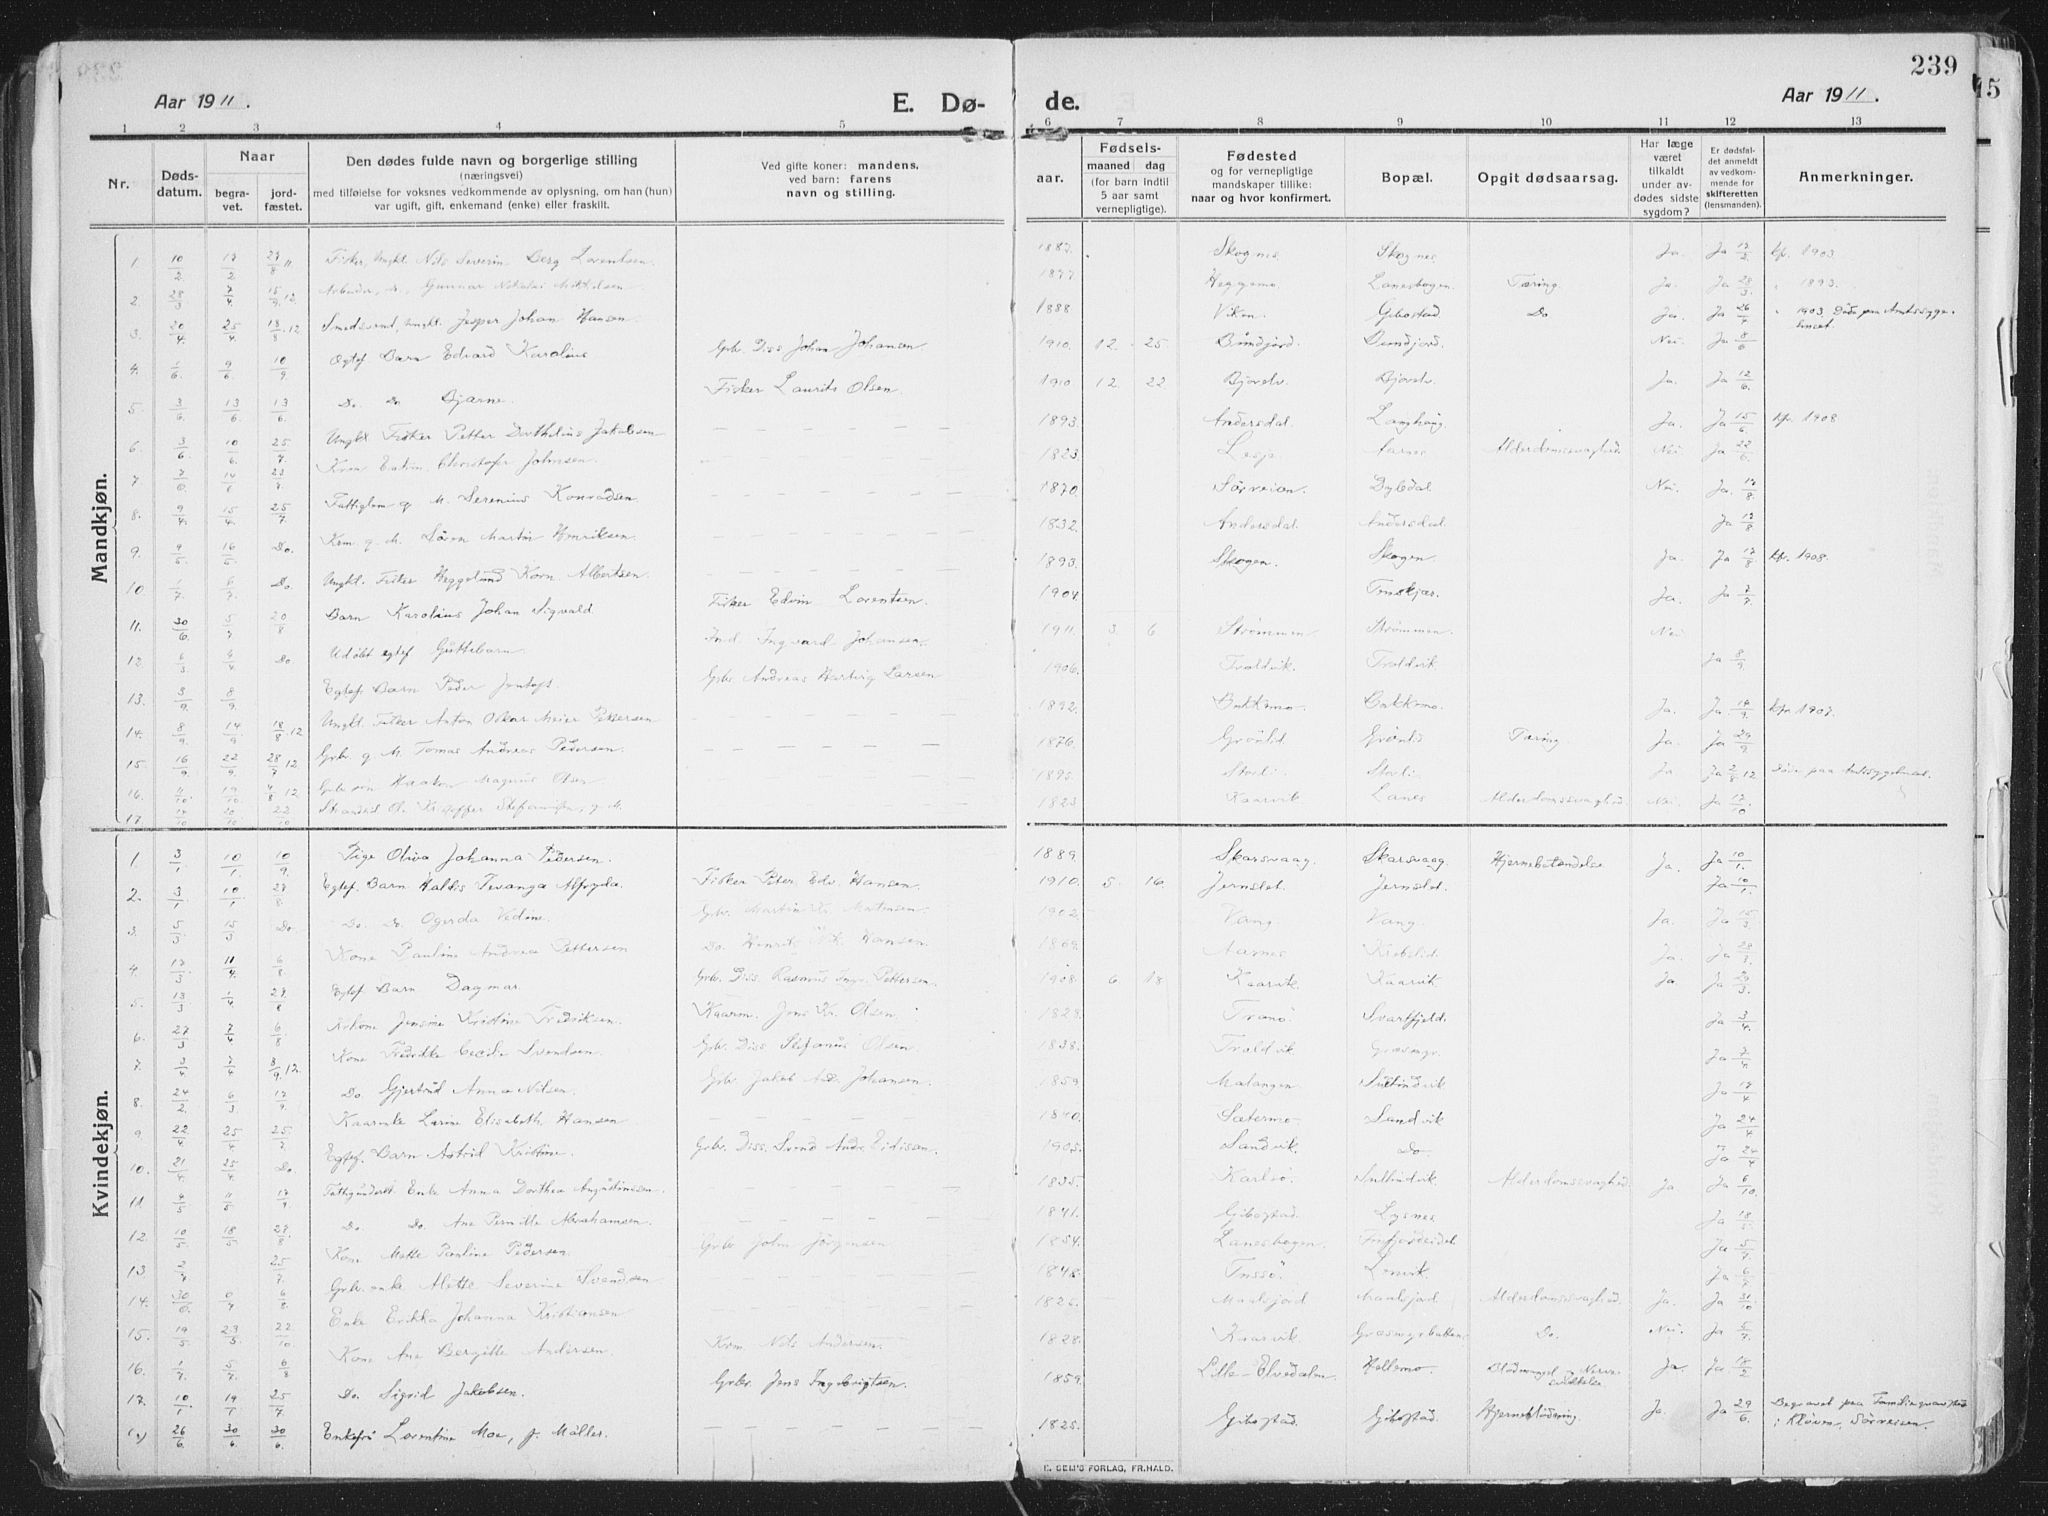 239
15
Aar 1911.
E. Dø-
de.
Aar 1911.
1 2 3 4 5 6 7 8 9 10 11 12 13
Nr.
Døds-
datum.
Naar
begra-
vet.
jord-
fæstet.
Den dødes fulde navn og borgerlige stilling
(næringsvei)
med tilføielse for voksnes vedkommende av oplysning, om han (hun)
var ugift, gift, enkemand (enke) eller fraskilt.
Ved gifte koner: mandens,
ved barn: farens
navn og stilling.
Fødsels-
aar.
maaned dag
(for barn indtil
5 aar samt
vernepligtige).
Fødested
og for vernepligtige
mandskaper tillike:
naar og hvor konfirmert.
Bopæl.
Opgit dødsaarsag.
Har læge
været
tilkaldt
under av-
dødes sidste
sygdom?
Er dødsfal-
det anmeldt
av vedkom-
mende for
skifteretten
(lensmanden).
Anmerkninger.
Mandkjøn.
1. 10/2 17/2 Fisker, Ungkl. Nils Severin Berg Lorentsen. 1887. Skognes Skognes. Ja. Ja 17/2 kfr. 1903.
2. 28/3 7/4. 15/9.12 Arbeider, Gunnar Nikolai Mikkelsen 1877. Heggemo. Lanesbogen. Tæring Ja. Ja 28/3 1893.
3. 20/4. 25/4. 18/8.12 Smedsvend, Ungkl. Jesper Johan Hansen. 1888 Viken. Gibostad Do Ja. Ja 26/4 1903. Døde paa Amtssyge-
huset.
4. 1/6. 9/6. 10/9. Egtef Barn Edvard Karolius Grb. Diss. Johan Johansen 1910. 12. 25. Bundfjord. Bundfjord. Nei. Ja 8/6
5. 3/6. 13/6 13/6. Do. Do Bjarne. Fisker Laurits Olsen. 1910. 12. 22 Bjorelv. Bjorelv. Ja. Ja 12/6.
6. 3/6. 10/6. 25/7 Ungkl Fisker Petter Dorthelius Jakobsen 1893. Andersdal. Langhaug. Ja. Ja 15/6. kfr. 1908
7 7/6 14/6 Krm Edvin Christofer Johnsen. 1823. Aarnes Alderdomssvaghed. Nei Ja 22/6.
8. 9/4. 15/4. 25/7 Fattiglem g. M. Serenius Konradsen. 1870. Sörreisen. Nei. Ja. 17/8.
9. 9/5. 16/5. Do. Krm. g. M. Sören Martin Henriksen. 1832. Andersdal. Andersdal Ja 17/8
10. 1/7. 6/7. Do Ungkl. Fisker Heggelund Korn. Albertsen. 1893. Skogen. Skogen. Ja. Ja 17/8 kfr. 1908.
11. 30/6. 5/7 20/8 Barn Karolius Johan Sigvald Fisker Edvin Lorentsen. 1904. Ja. Ja 7/7.
12. 6/3 4/4 Do Udøbt egtef Guttebarn. Ind. Ingvard Johansen. 1911. 3. 6 Strömmen Strömmen. Nei
13. 3/9. 8/9. Egtef Barn Peder Grbr Andreas Hartvig Larsen 1906. Troldvik. Troldvik Ja 8/9.
14. 8/9. 14/9 18/8.12 Ungkl Fisker Anton Oskar Meier Pettersen 1892. Bakkemo Bakkemo. Ja. Ja. 14/9. kfr 1907.
15. 16/9. 22/9. 28/7 12 Grbr. g. M. Tomas Andreas Pedersen. 1876. Grönlid Grönlid Tæring. Ja. Ja 29/9.
16. 11/10. 19/10. 4/8 12 Grbr søn Haakon Magnus Olsen 1895. Storli. Storli. Ja Ja 2/8 12 Döde paa Amtssygehuset.
17. 17/10 20/10. 22/10 Strandsid. Ol. Kristoffer Stefanusen, g. M. 1823 Kaarvik Lanes Alderdomssvaghed Nei Ja 17/10
Kvindekjøn.
1. 3/1 10/1. 10/9. Pige Oliva Johanna Pedersen. 1889. Skarsvaag. Skarsvaag Hjernebetændelse Ja. Ja 10/1.
2. 3/1 10/1 Egtef. Barn Haldis Tevanga Alfryda. Fisker Peter Edv. Hansen. 1910. 5. 16. Jernslet. Jernslet. Ja 10/1.
3. 5/3 15/3 Do. Do. Do. Ogerda Vedine. Grbr. Martin Kr. Mortensen. 1902. Vang Vang. Ja. Ja 15/3
4. 17/3. 11/4. 6/8 Kone Pauline Andrea Pettersen Do. Henrik Nik. Hansen. 1869. Aarnes Ja. Ja 28/3.
5. 13/3 1/4 Egtef Barn Dagmar. Grbr. Diss. Rasmus Ingv. Pettersen. 1908. 6 18 Kaarvik. Kaarvik. Ja Ja 29/3.
6. 27/3 7/4 6/8 Jensine Kristine Fredriksen. Kaarm. Jens Kr. Olsen. 1828. Tranö Svartfjeld. Ja 3/4.
7. 3/4 7/4 8/9.12. Kone Fredrikke Cecilie Svendsen. Grb. Diss Stefanus Olsen 1838. Troldvik. Ja 7/4
8. 24/2. 6/3 17/9. Do. Gjertrud Anna Nilsen. Grbr. Jakob And. Johansen. 1859 Malangen Sultindvik Ja 17/4
9. 22/4 25/4 25/7. Kaarenke Larine Elisabeth Hansen 1840. Sætermo Sandvik Ja 24/4
10. 21/4. 25/4. Do. Egtef. Barn Astrid Kristine. Grbr. Diss. Svend Andr. Eidisen. 1905. Sandvik Do. Ja 24/4
11 4/5 11/5 17/9 Fattigunderst. Enke Anna Dorthea Augustinusen. 1835. Karlsö Sultindvik. Alderdomssvaghed. Ja Ja 6/10.
12. 10/5. 18/5 Do. Do. Ane Pernille Abrahamsen. 1841. Gibostad. Lysnes. Ja 18/5.
13 25/7. Kone Mette Pauline Pedersen. Grbr. John Jörgensen 1854. Lanesbogen. Finfjordeidet Ja 5/7
14. 30/6 6/8 Grbr. enke Alette Severine Svendsen 1848. Tussö Lenvik. Ja 6/7
15. 19/5 23/5. 22/10 Enke Erikka Johanna Kristiansen 1826. Maalsjord Maalsjord Alderdomssvaghed. Ja. Ja 31/10.
16. 1/7. 5/7. 6/8 Kone Ane Bergitte Andersen. Krm. Nils Andersen. 1828. Kaarvik Græsmyrbakken Do. Nei. Ja 5/7.
17. 10/1. 19/1 25/7. Do. Sigrid Jakobsen. Grbr. Jens Ingebrigtsen. 1859. Lille-Elvedalen Hellemo. Blodmangel og Nerve-
svækkelse. Ja. Ja 18/2
26/6. 30/6 30/6. Enkefru Lorentine Moe, f. Möller. 1825. Gibostad. Gibostad Hjerneblödning. Ja. Ja 29/6. Begravet paa Familiegravsted
i Klöven, Sörreisen.
E. SEM'S FORLAG, FR.HALD.